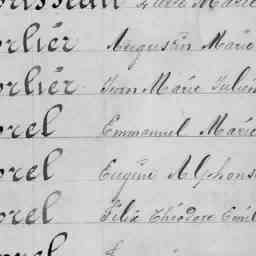 orisseau Pierre Marie
orlier Augustin Marie
orlier Jean Marie Julien
orel Emmanuel Marie
orel Eugène Alphons
orel Félix Théodore Emil
orel